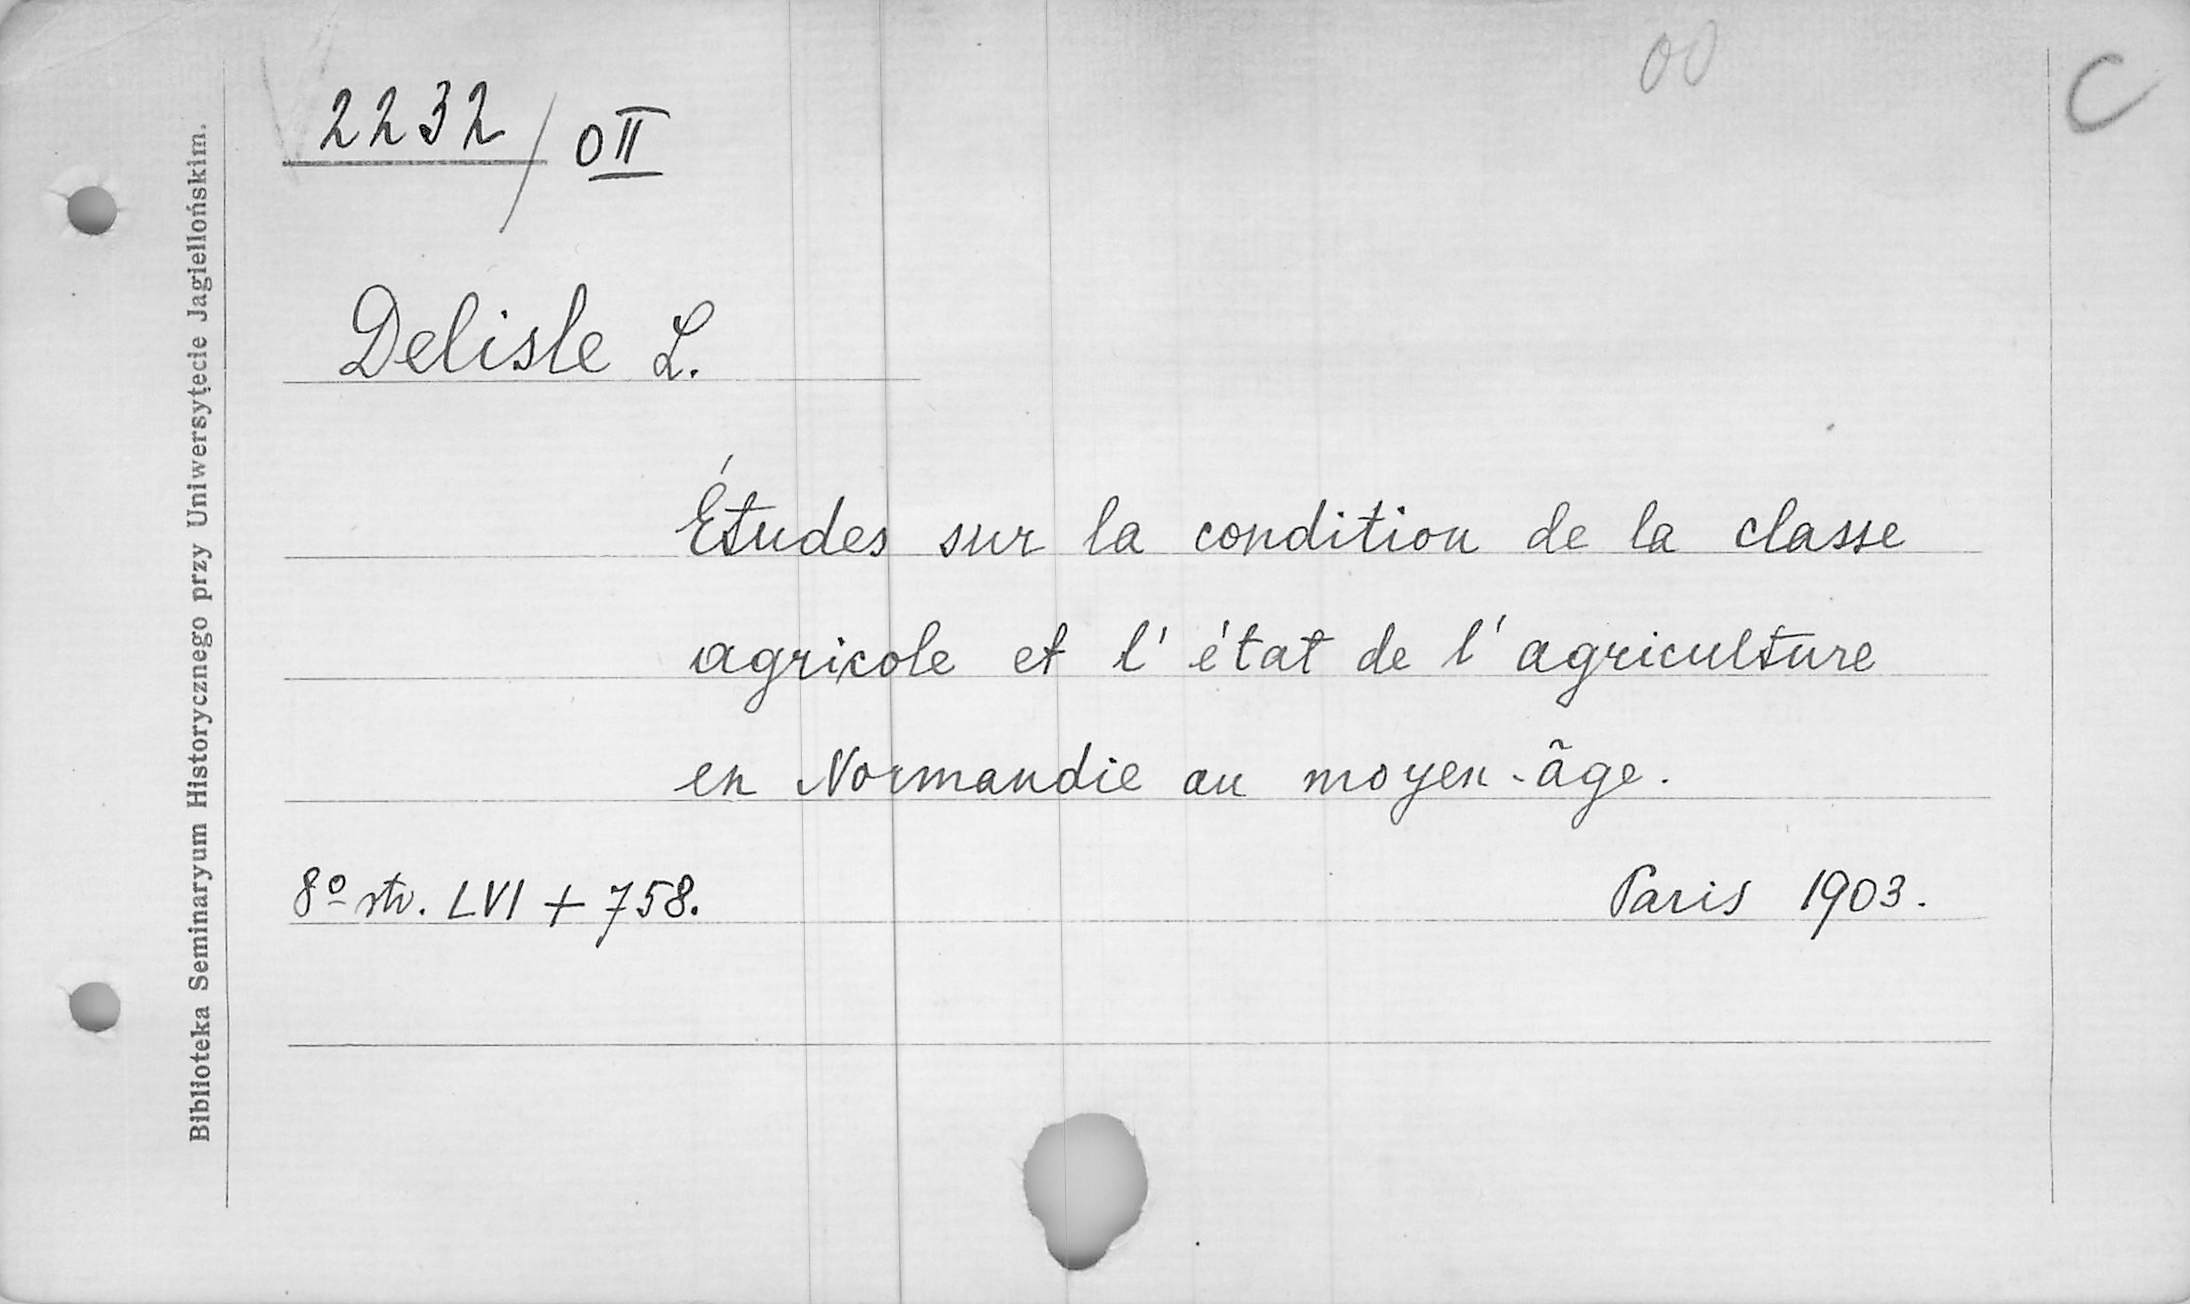 00
C
2232 / OII
Delisle L.
Études sur la condition de la classe
agricole et l'état de l'agriculture
en Normandie au moyen-âge.
8º str. LVI + 758. Paris 1903.
Biblioteka Seminaryum Historycznego przy Uniwersytecie Jagiellońskim.